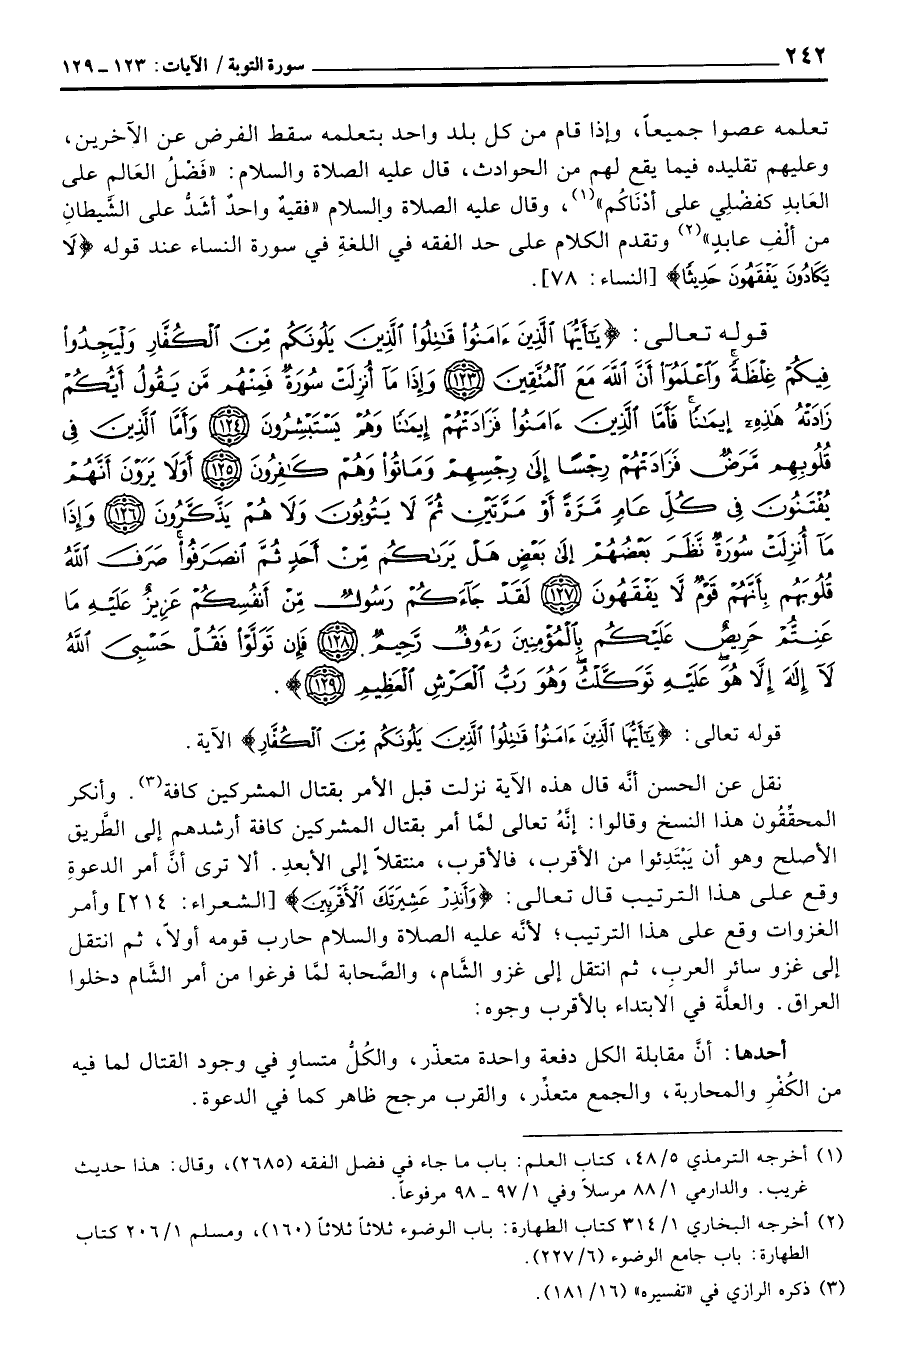 ٢٤٢ ــــــــــــــــــــ سورة التوبة / الآيات: ١٢٣ ـ ١٢٩
تعلمه عصوا جميعاً، وإذا قام من كل بلد واحد بتعلمه سقط الفرض عن الآخرين،
وعليهم تقليده فيما يقع لهم من الحوادث، قال عليه الصلاة والسلام: «فَضْلُ العَالم على
العَابدِ كفضْلِي على أدْنَاكُم»(١)، وقال عليه الصلاة والسلام «فقيهٌ واحدٌ أشدُّ على الشَّيطانِ
من ألْفِ عابدٍ»(٢) وتقدم الكلام على حد الفقه في اللغةِ في سورة النساء عند قوله ﴿لَا
يَكَادُونَ يَفْقَهُونَ حَدِيثًا﴾ [النساء: ٧٨].
قوله تعالى: ﴿يَٰٓأَيُّهَا ٱلَّذِينَ ءَامَنُوا۟ قَٰتِلُوا۟ ٱلَّذِينَ يَلُونَكُم مِّنَ ٱلْكُفَّارِ وَلْيَجِدُوا۟
فِيكُمْ غِلْظَةً ۚ وَٱعْلَمُوٓا۟ أَنَّ ٱللَّهَ مَعَ ٱلْمُتَّقِينَ ١٢٣ وَإِذَا مَآ أُنزِلَتْ سُورَةٌ فَمِنْهُم مَّن يَقُولُ أَيُّكُمْ
زَادَتْهُ هَٰذِهِۦٓ إِيمَٰنًا ۚ فَأَمَّا ٱلَّذِينَ ءَامَنُوا۟ فَزَادَتْهُمْ إِيمَٰنًا وَهُمْ يَسْتَبْشِرُونَ ١٢٤ وَأَمَّا ٱلَّذِينَ فِى
قُلُوبِهِم مَّرَضٌ فَزَادَتْهُمْ رِجْسًا إِلَىٰ رِجْسِهِمْ وَمَاتُوا۟ وَهُمْ كَٰفِرُونَ ١٢٥ أَوَلَا يَرَوْنَ أَنَّهُمْ
يُفْتَنُونَ فِى كُلِّ عَامٍ مَّرَّةً أَوْ مَرَّتَيْنِ ثُمَّ لَا يَتُوبُونَ وَلَا هُمْ يَذَّكَّرُونَ ١٢٦ وَإِذَا
مَآ أُنزِلَتْ سُورَةٌ نَّظَرَ بَعْضُهُمْ إِلَىٰ بَعْضٍ هَلْ يَرَىٰكُم مِّنْ أَحَدٍ ثُمَّ ٱنصَرَفُوا۟ ۚ صَرَفَ ٱللَّهُ
قُلُوبَهُم بِأَنَّهُمْ قَوْمٌ لَّا يَفْقَهُونَ ١٢٧ لَقَدْ جَآءَكُمْ رَسُولٌ مِّنْ أَنفُسِكُمْ عَزِيزٌ عَلَيْهِ مَا
عَنِتُّمْ حَرِيصٌ عَلَيْكُم بِٱلْمُؤْمِنِينَ رَءُوفٌ رَّحِيمٌ ١٢٨ فَإِن تَوَلَّوْا۟ فَقُلْ حَسْبِىَ ٱللَّهُ
لَآ إِلَٰهَ إِلَّا هُوَ ۖ عَلَيْهِ تَوَكَّلْتُ ۖ وَهُوَ رَبُّ ٱلْعَرْشِ ٱلْعَظِيمِ ١٢٩﴾.
قوله تعالى: ﴿يَٰٓأَيُّهَا ٱلَّذِينَ ءَامَنُوا۟ قَٰتِلُوا۟ ٱلَّذِينَ يَلُونَكُم مِّنَ ٱلْكُفَّارِ﴾ الآية.
نقل عن الحسن أنَّه قال هذه الآية نزلت قبل الأمر بقتال المشركين كافة(٣). وأنكر
المحقِّقُون هذا النسخ وقالوا: إنَّهُ تعالى لمَّا أمر بقتال المشركين كافة أرشدهم إلى الطَّريق
الأصلح وهو أن يَبْتَدِئوا من الأقرب، فالأقرب، منتقلاً إلى الأبعدِ. ألا ترى أنَّ أمر الدعوةِ
وقع على هذا الترتيب قال تعالى: ﴿وَأَنذِرْ عَشِيرَتَكَ ٱلْأَقْرَبِينَ﴾ [الشعراء: ٢١٤] وأمر
الغزوات وقع على هذا الترتيب؛ لأنَّه عليه الصلاة والسلام حارب قومه أولاً، ثم انتقل
إلى غزو سائر العربِ، ثم انتقل إلى غزو الشَّام، والصَّحابة لمَّا فرغوا من أمر الشَّام دخلوا
العراق. والعلَّة في الابتداء بالأقرب وجوه:
أحدها: أنَّ مقابلة الكل دفعة واحدة متعذّر، والكُلُّ متساوٍ في وجود القتال لما فيه
من الكُفْرِ والمحاربة، والجمع متعذِّر، والقرب مرجح ظاهر كما في الدعوة.
(١) أخرجه الترمذي ٤٨/٥، كتاب العلم: باب ما جاء في فضل الفقه (٢٦٨٥)، وقال: هذا حديث
غريب. والدارمي ٨٨/١ مرسلاً وفي ٩٧/١ ـ ٩٨ مرفوعاً.
(٢) أخرجه البخاري ٣١٤/١ كتاب الطهارة: باب الوضوء ثلاثاً ثلاثاً (١٦٠)، ومسلم ٢٠٦/١ كتاب
الطهارة: باب جامع الوضوء (٢٢٧/٦).
(٣) ذكره الرازي في «تفسيره» (١٨١/١٦).